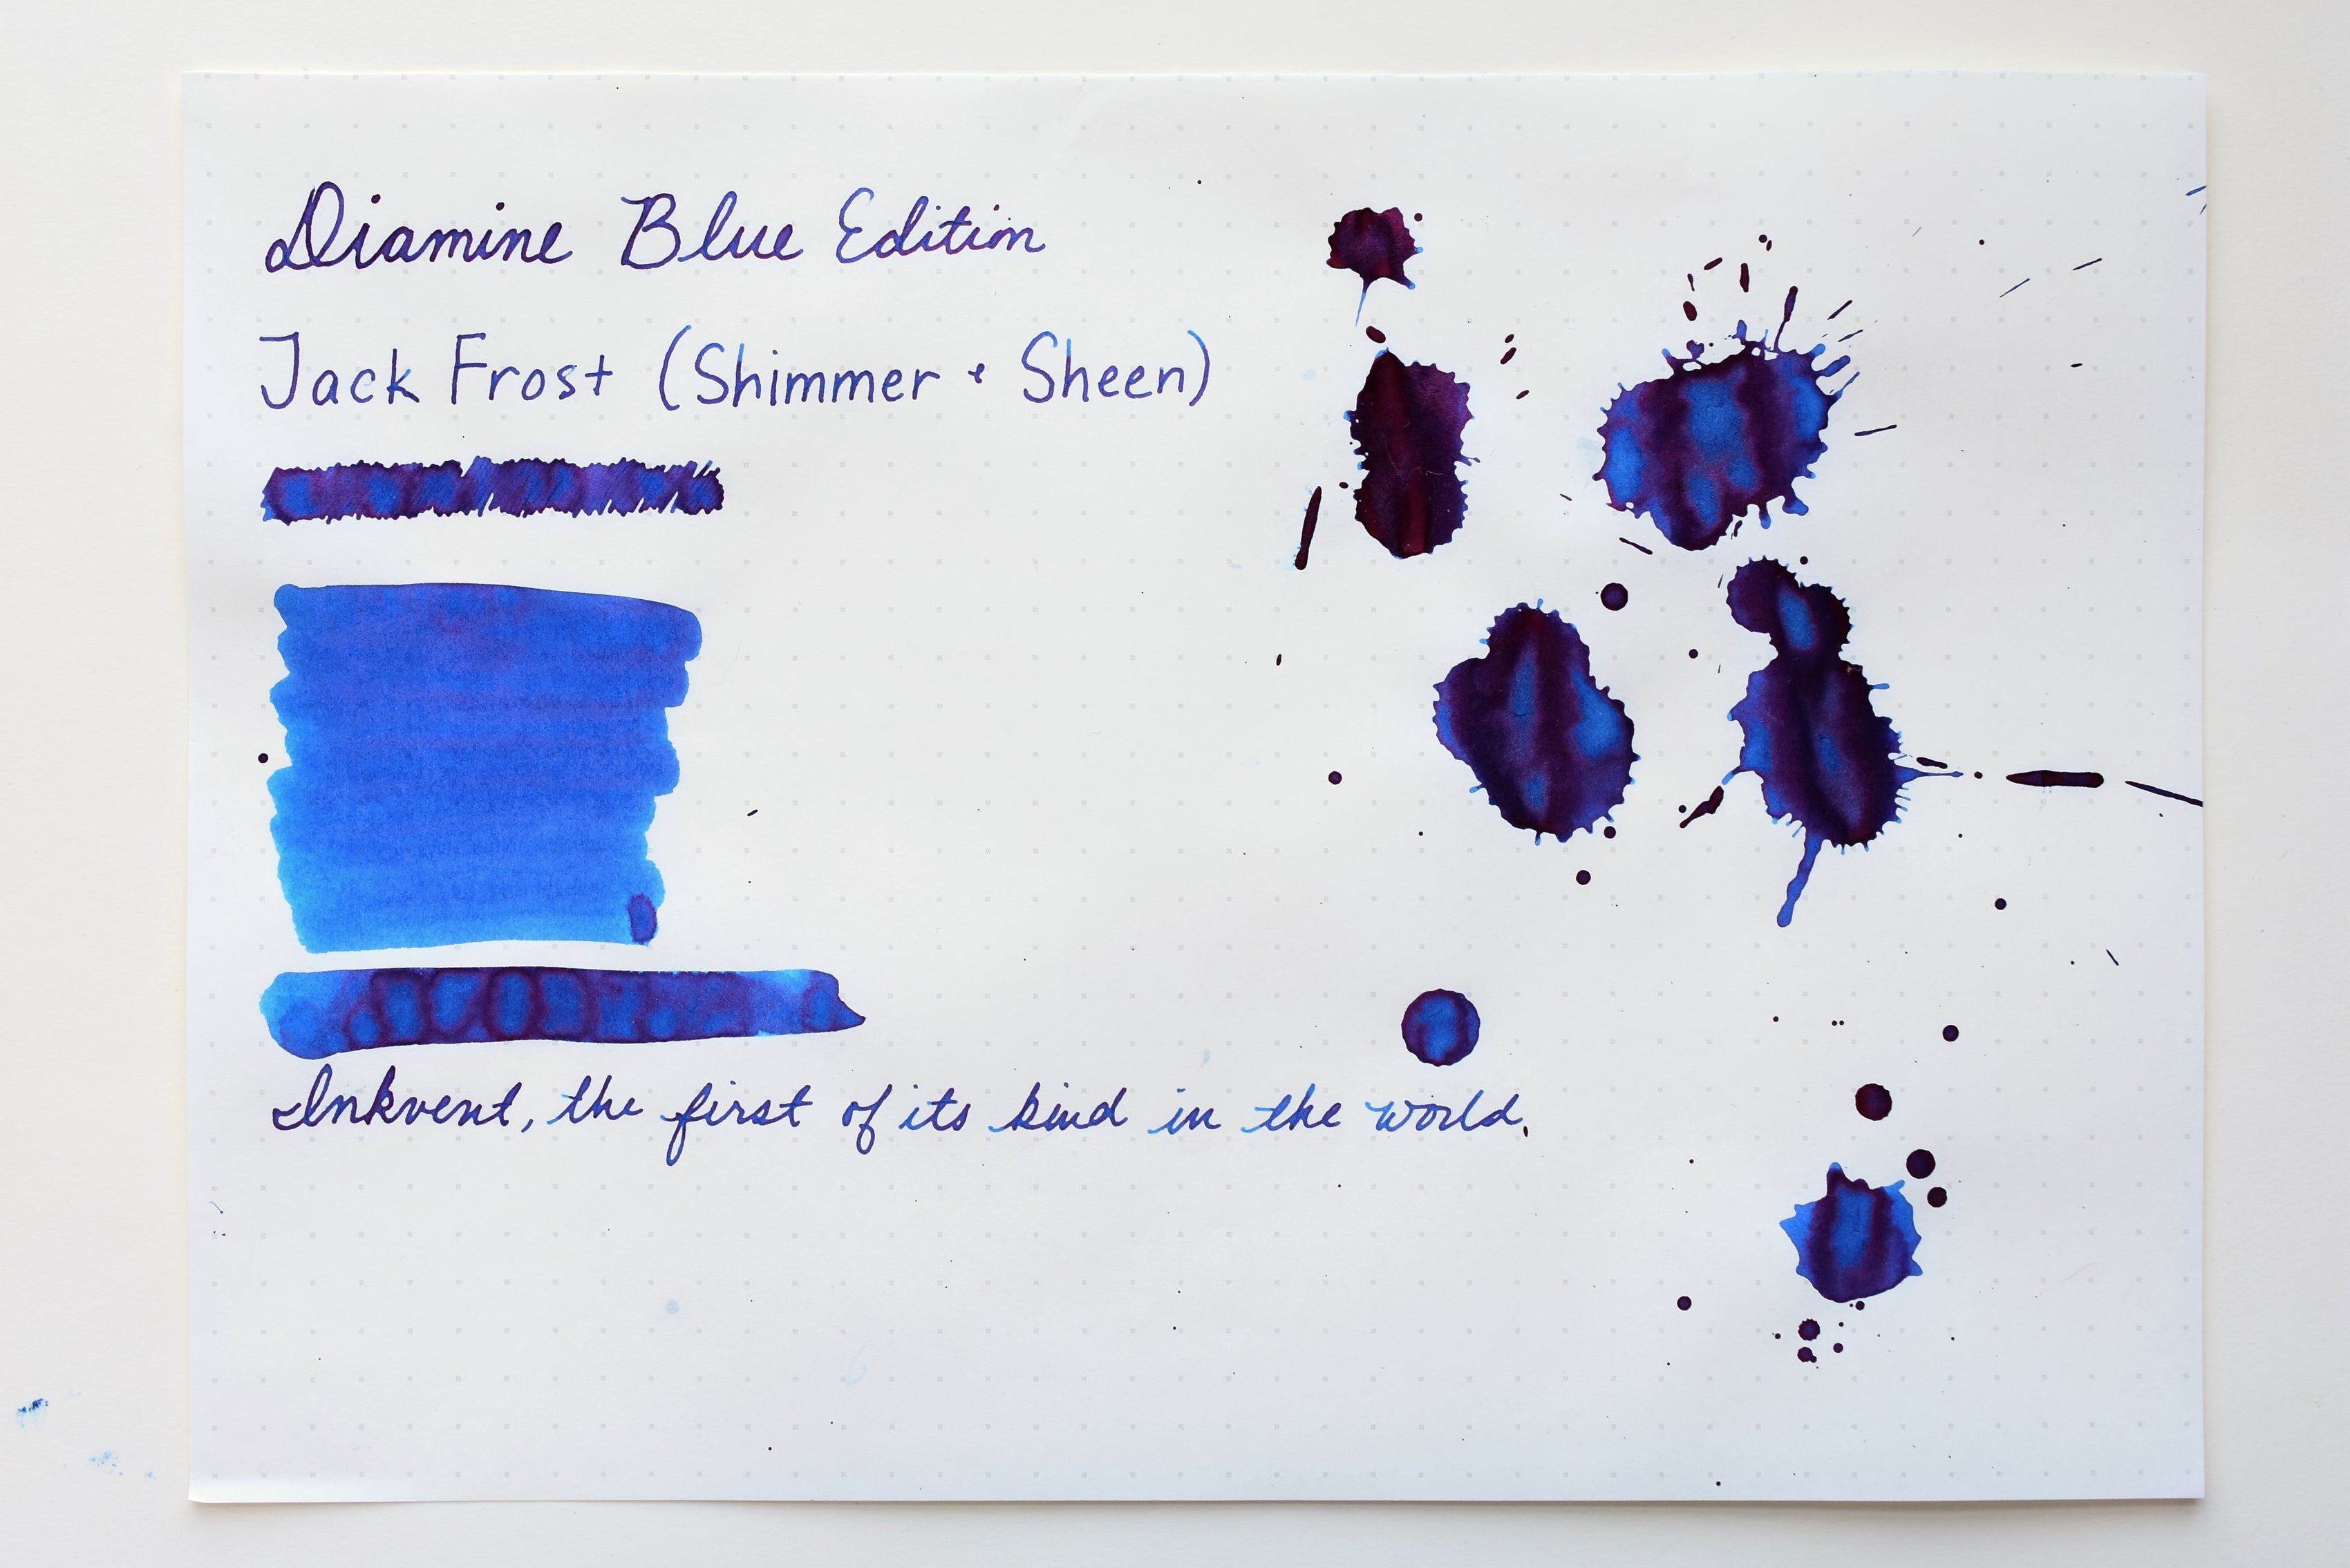 Diamine Blue Edition
Jack Frost (Shimmer + Sheen)
Inkvent, the first of its kind in the world.